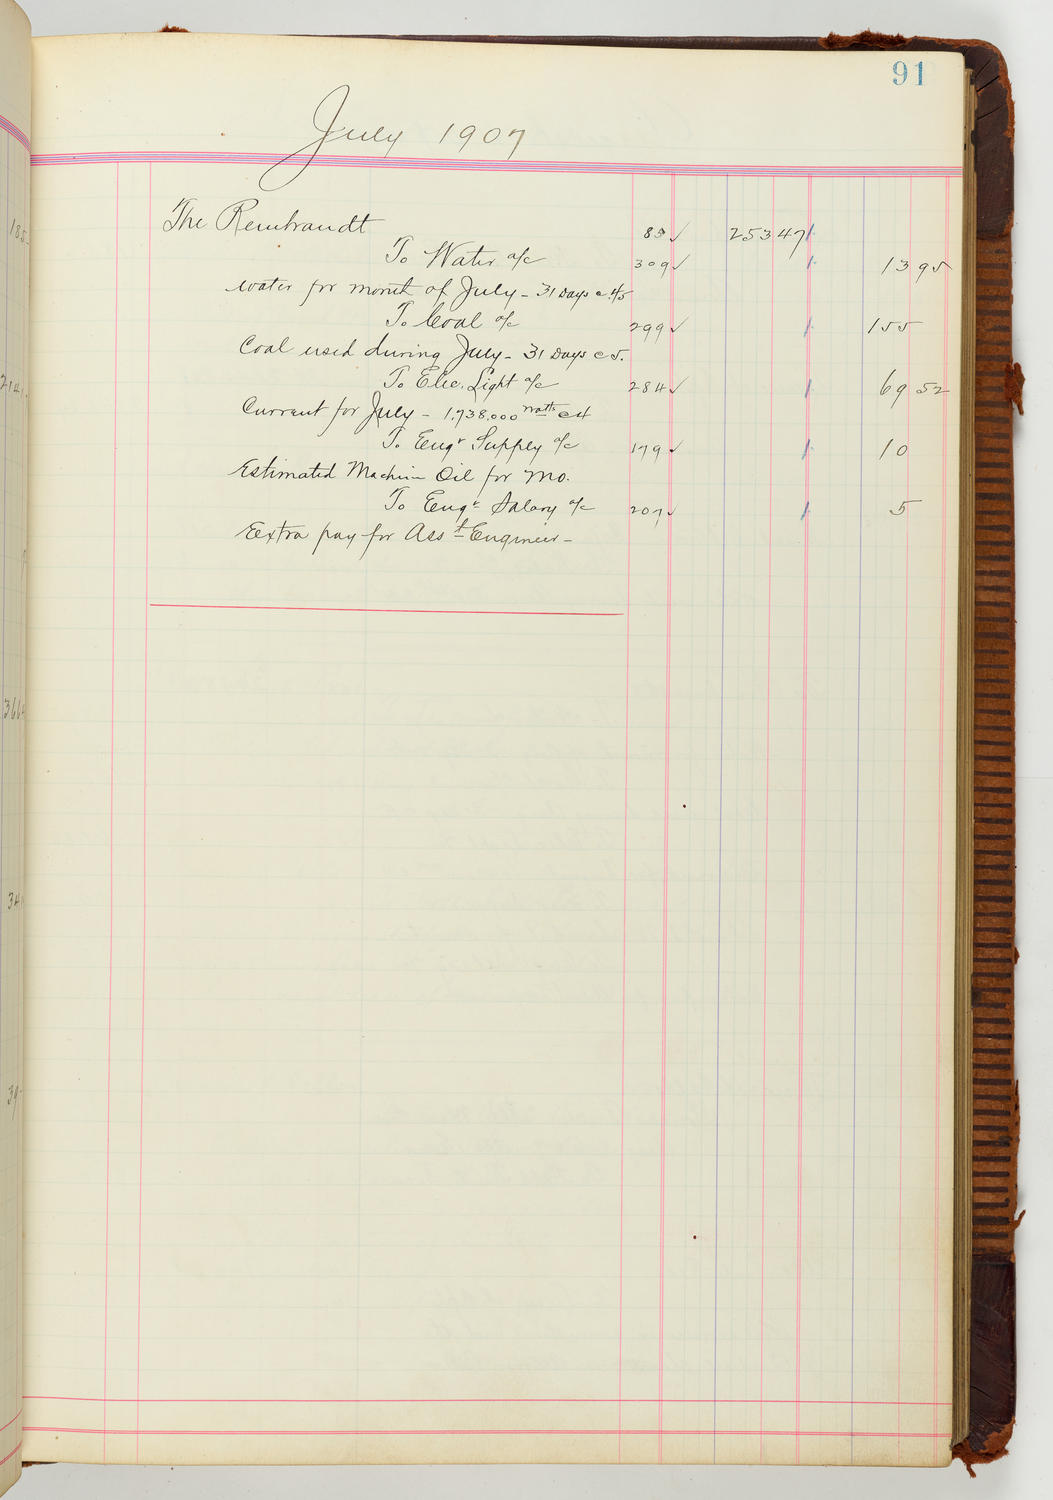 91
July 1907
The Rembrandt 85 ✓ 253 47
To Water a/c 309 ✓ 13 95
water for month of July - 31 Days @ .45
To Coal a/c 299 ✓ 155
Coal used during July - 31 Days @ 5.
To Elec. Light a/c 284 ✓ 69 52
Current for July - 1,738,000 watts @ 4
To Engr Supply a/c 179 ✓ 10
Estimated Machine Oil for Mo.
To Engr Salary a/c 207 ✓ 5
Extra pay for Asst Engineer -
185
214
366
34
39